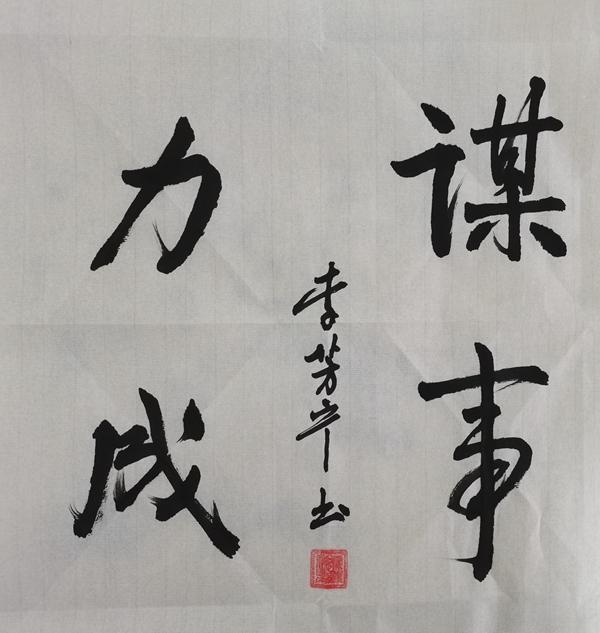 谋事
力成
李芳平书